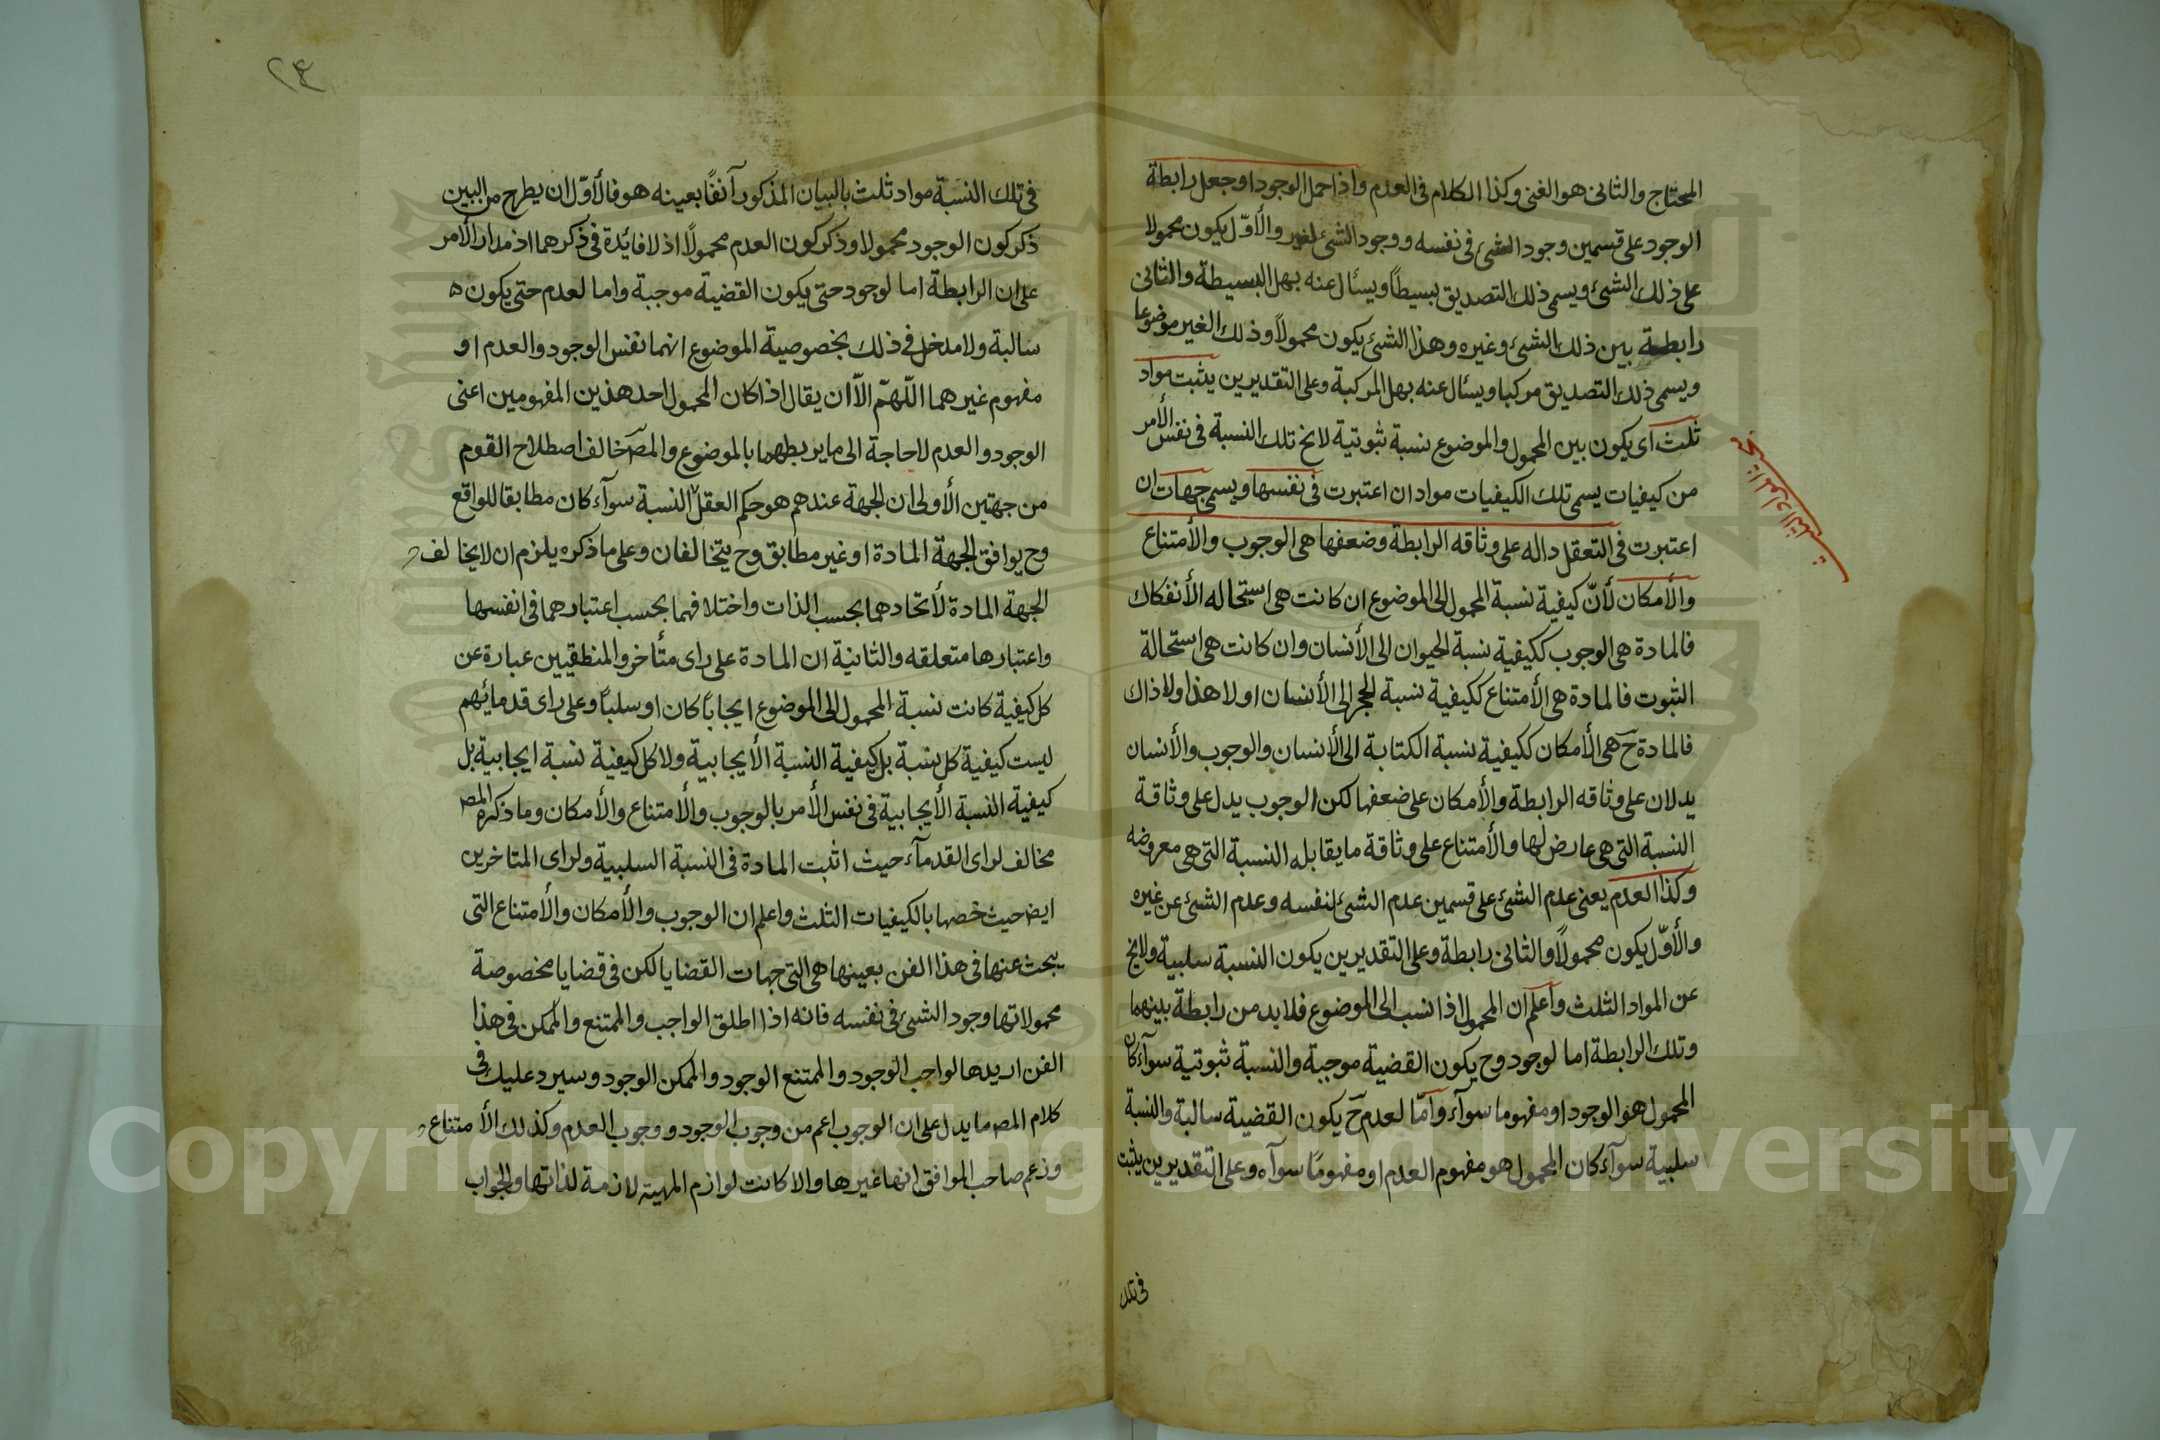 المحتاج والثانى هو الغنى وكذا الكلام فى العدم واذا حمل الوجود او جعل رابطة
الوجود على قسمين وجود الشئ فى نفسه ووجود الشئ لغيره والأوّل يكون محمولا
على ذلك الشئ ويسمى ذلك التصديق بسيطاً ويسأل عنه بهل البسيطة والثانى
رابطة بين ذلك الشئ وغيره وهذا الشئ يكون محمولاً وذلك الغير موضوعا
ويسمى ذلك التصديق مركبا ويسأل عنه بهل المركبة وعلى التقديرين يثبت مواد
ثلث اى يكون بين المحمول والموضوع نسبة ثبوتية لايخ تلك النسبة فى نفس الأمر
من كيفيات يسمى تلك الكيفيات مواد ان اعتبرت فى نفسها ويسمى جهات ان
اعتبرت فى التعقل داله على وثاقه الرابطة وضعفها هى الوجوب والأمتناع
والأمكان لأنّ كيفية نسبة المحمول الى الموضوع ان كانت هى استحاله الأنفكاك
فالمادة هى الوجوب ككيفية نسبة الحيوان الى الأنسان وان كانت هى استحالة
الثبوت فالمادة هى الأمتناع ككيفية نسبة الحجر الى الأنسان او لا هذا ولا ذاك
فالمادة ح هى الأمكان ككيفية نسبة الكتابة الى الأنسان والوجوب والأنسان
يدلان على وثاقه الرابطة والأمكان على ضعفها لكن الوجوب يدل على وثاقة
النسبة التى هى عارض لها والأمتناع على وثاقة ما يقابله النسبة التى هى معروضه
وكذا العدم يعنى عدم الشئ على قسمين عدم الشئ لنفسه وعدم الشئ عن غيره
والأوّل يكون محمولاً والثانى رابطة وعلى التقديرين يكون النسبة سلبية ولايخ
عن المواد الثلث واعلم ان المحمول اذا نسب الى الموضوع فلا بد من رابطة بينهما
وتلك الرابطة اما لوجود وح يكون القضية موجبة والنسبة ثبوتية سوآء كان
المحمول هو الوجود او مفهوما سوآء وامّا لعدم ح يكون القضية سالبة والنسبة
سلبية سوآء كان المحمول هو مفهوم العدم او مفهومًا سوآه وعلى التقديرين يثبت
فى تلك
٢٤
فى تلك النسبة مواد ثلث بالبيان المذكور آنفًا بعينه هو فالأوّل ان يطرح من البين
ذكر كون الوجود محمولا وذكر كون العدم محمولاً اذ لا فائدة فى ذكرهما اذ مدار الأمر
على ان الرابطة اما لوجود حتى يكون القضية موجبة واما لعدم حتى يكون
سالبة ولا مدخل فى ذلك بخصوصية الموضوع انهما نفس الوجود والعدم او
مفهوم غيرهما اللّهمّ الاّ ان يقال اذا كان المحمول احد هذين المفهومين اعنى
الوجود والعدم لا حاجة الى ما يربطهما بالموضوع والمص خالف اصطلاح القوم
من جهتين الأولى ان الجهة عندهم هو حكم العقل النسبة سوآء كان مطابقا للواقع
وح يوافق الجهة المادة او غير مطابق وح يتخالفان وعلى ما ذكره يلزم ان لا يخالف
الجهة المادة لأتحادهما بحسب الذات واختلافهما بحسب اعتبارهما فى انفسها
واعتبارها متعلقه والثانية ان المادة على راى متأخروا المنطقيين عبارة عن
كل كيفية كانت نسبة المحمول الى الموضوع ايجاباً كان او سلباً وعلى راى قدمائهم
ليست كيفية كل نسبة بل كيفية النسبة الأيجابية ولا كل كيفية نسبة ايجابية بل
كيفية النسبة الأيجابية فى نفس الأمر بالوجوب والأمتناع والأمكان وما ذكره المص
مخالف لراى القدمآء حيث اثبت المادة فى النسبة السلبية ولراى المتاخرين
ايض حيث خصها بالكيفيات الثلث واعلم ان الوجوب والأمكان والأمتناع التى
يبحث عنها فى هذا الفن بعينها هى التى جهات القضايا لكن فى قضايا مخصوصة
محمولاتها وجود الشئ فى نفسه فانه اذا اطلق الواجب والممتنع والممكن فى هذا
الفن اريد ها لواجب الوجود والممتنع الوجود والممكن الوجود وسيرد عليك فى
كلام المص ما يدل على ان الوجوب اعم من وجوب الوجود ووجوب العدم وكذلك الأمتناع
وزعم صاحب المواقف انها غيرها والا كانت لوازم المهية لازمة لذاتها والجواب
Copyright © King Saud University